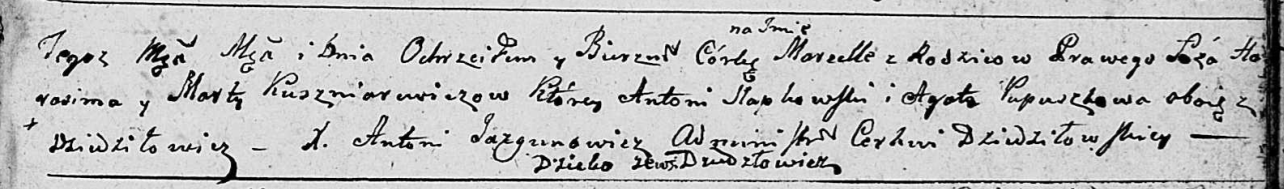 na Jmię
Tegoż Mca Mca i Dnia Ochrzciłem y Bierzm Córkę Marcelle z Rodzicow Prawego Łoża Ha
rasima y Marty Kuszniarewiczow Którey Antoni Słapkowski i Agata Papuszkowa oboie z
Dziedziłowicz – X. Antoni Jazgunowicz Administr Cerkwi Dziedziłowskiey —
Dziecko zewsi Dziedziłowicz